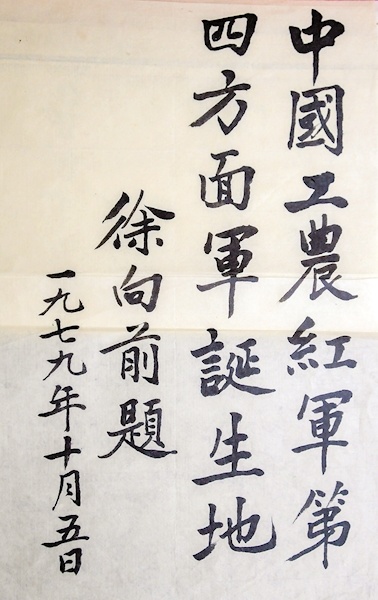 中國工農紅軍第
四方面軍誕生地
徐向前題
一九七九年十月五日